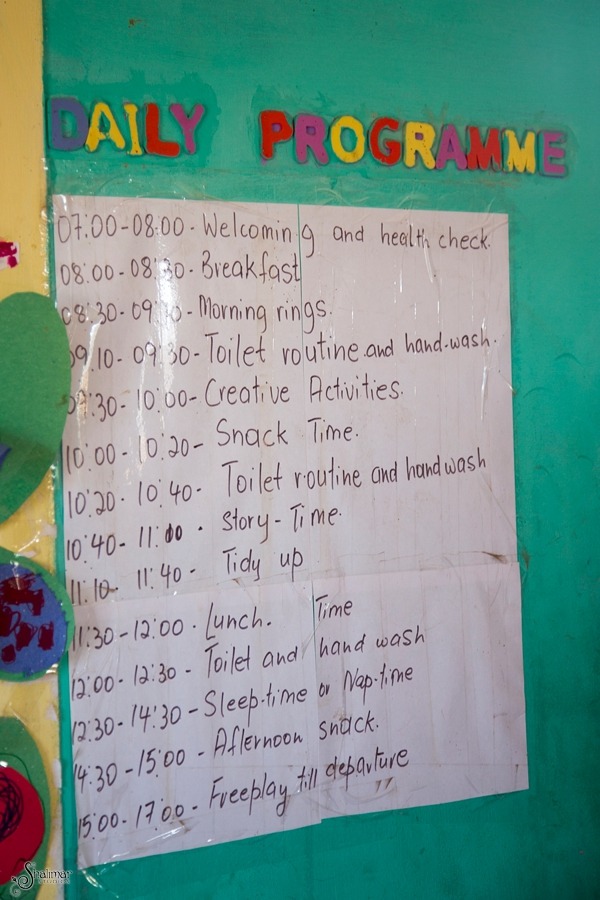 DAILY PROGRAMME
07:00-08:00 - Welcoming and health check.
08:00-08:30 - Breakfast
08:30-09:10 - Morning rings.
09.10-09:30 - Toilet routine and hand-wash.
09:30-10:00 - Creative Activities.
10:00-10:20 - Snack Time.
10:20-10:40 - Toilet routine and handwash
10:40-11:00 - Story-Time.
11:10-11:40 - Tidy up
11:30-12:00 - Lunch. Time
12:00-12:30 - Toilet and hand wash
12:30-14:30 - Sleep-time or Nap-time
14:30-15:00 - Afternoon snack.
15:00-17:00 - Freeplay till departure
Shalimar